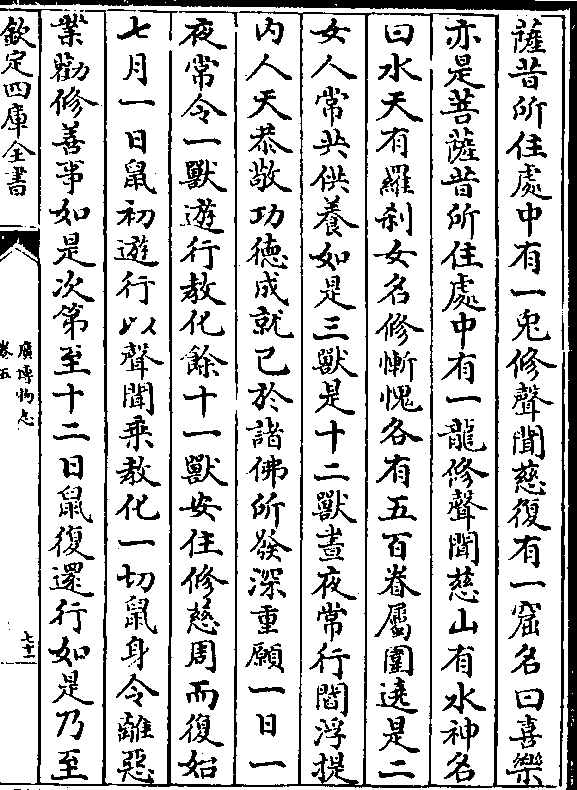 薩昔所住處中有一兎修聲聞慈復有一窟名曰喜樂
亦是菩薩昔所住處中有一龍修聲聞慈山有水神名
曰水天有羅刹女名修慚愧各有五百眷屬圍遶是二
女人常共供養如是三獸是十二獸晝夜常行閻浮提
内人天恭敬功德成就已於諸佛所發深重願一日一
夜常令一獸遊行敎化餘十一獸安住修慈周而復始
七月一日鼠初遊行以聲聞乗敎化一切鼠身令離惡
業勸修善事如是次第至十二日鼠復還行如是乃至
欽定四庫全書
廣博物志
卷五
七十一